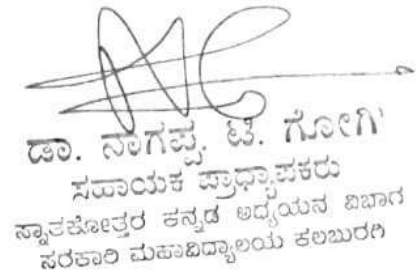 ಡಾ. ನಾಗಪ್ಪ. ಟಿ. ಗೋಗಿ
ಸಹಾಯಕ ಪ್ರಾಧ್ಯಾಪಕರು
ಸ್ನಾತಕೋತ್ತರ ಕನ್ನಡ ಅಧ್ಯಯನ ವಿಭಾಗ
ಸರಕಾರಿ ಮಹಾವಿದ್ಯಾಲಯ ಕಲಬುರಗಿ